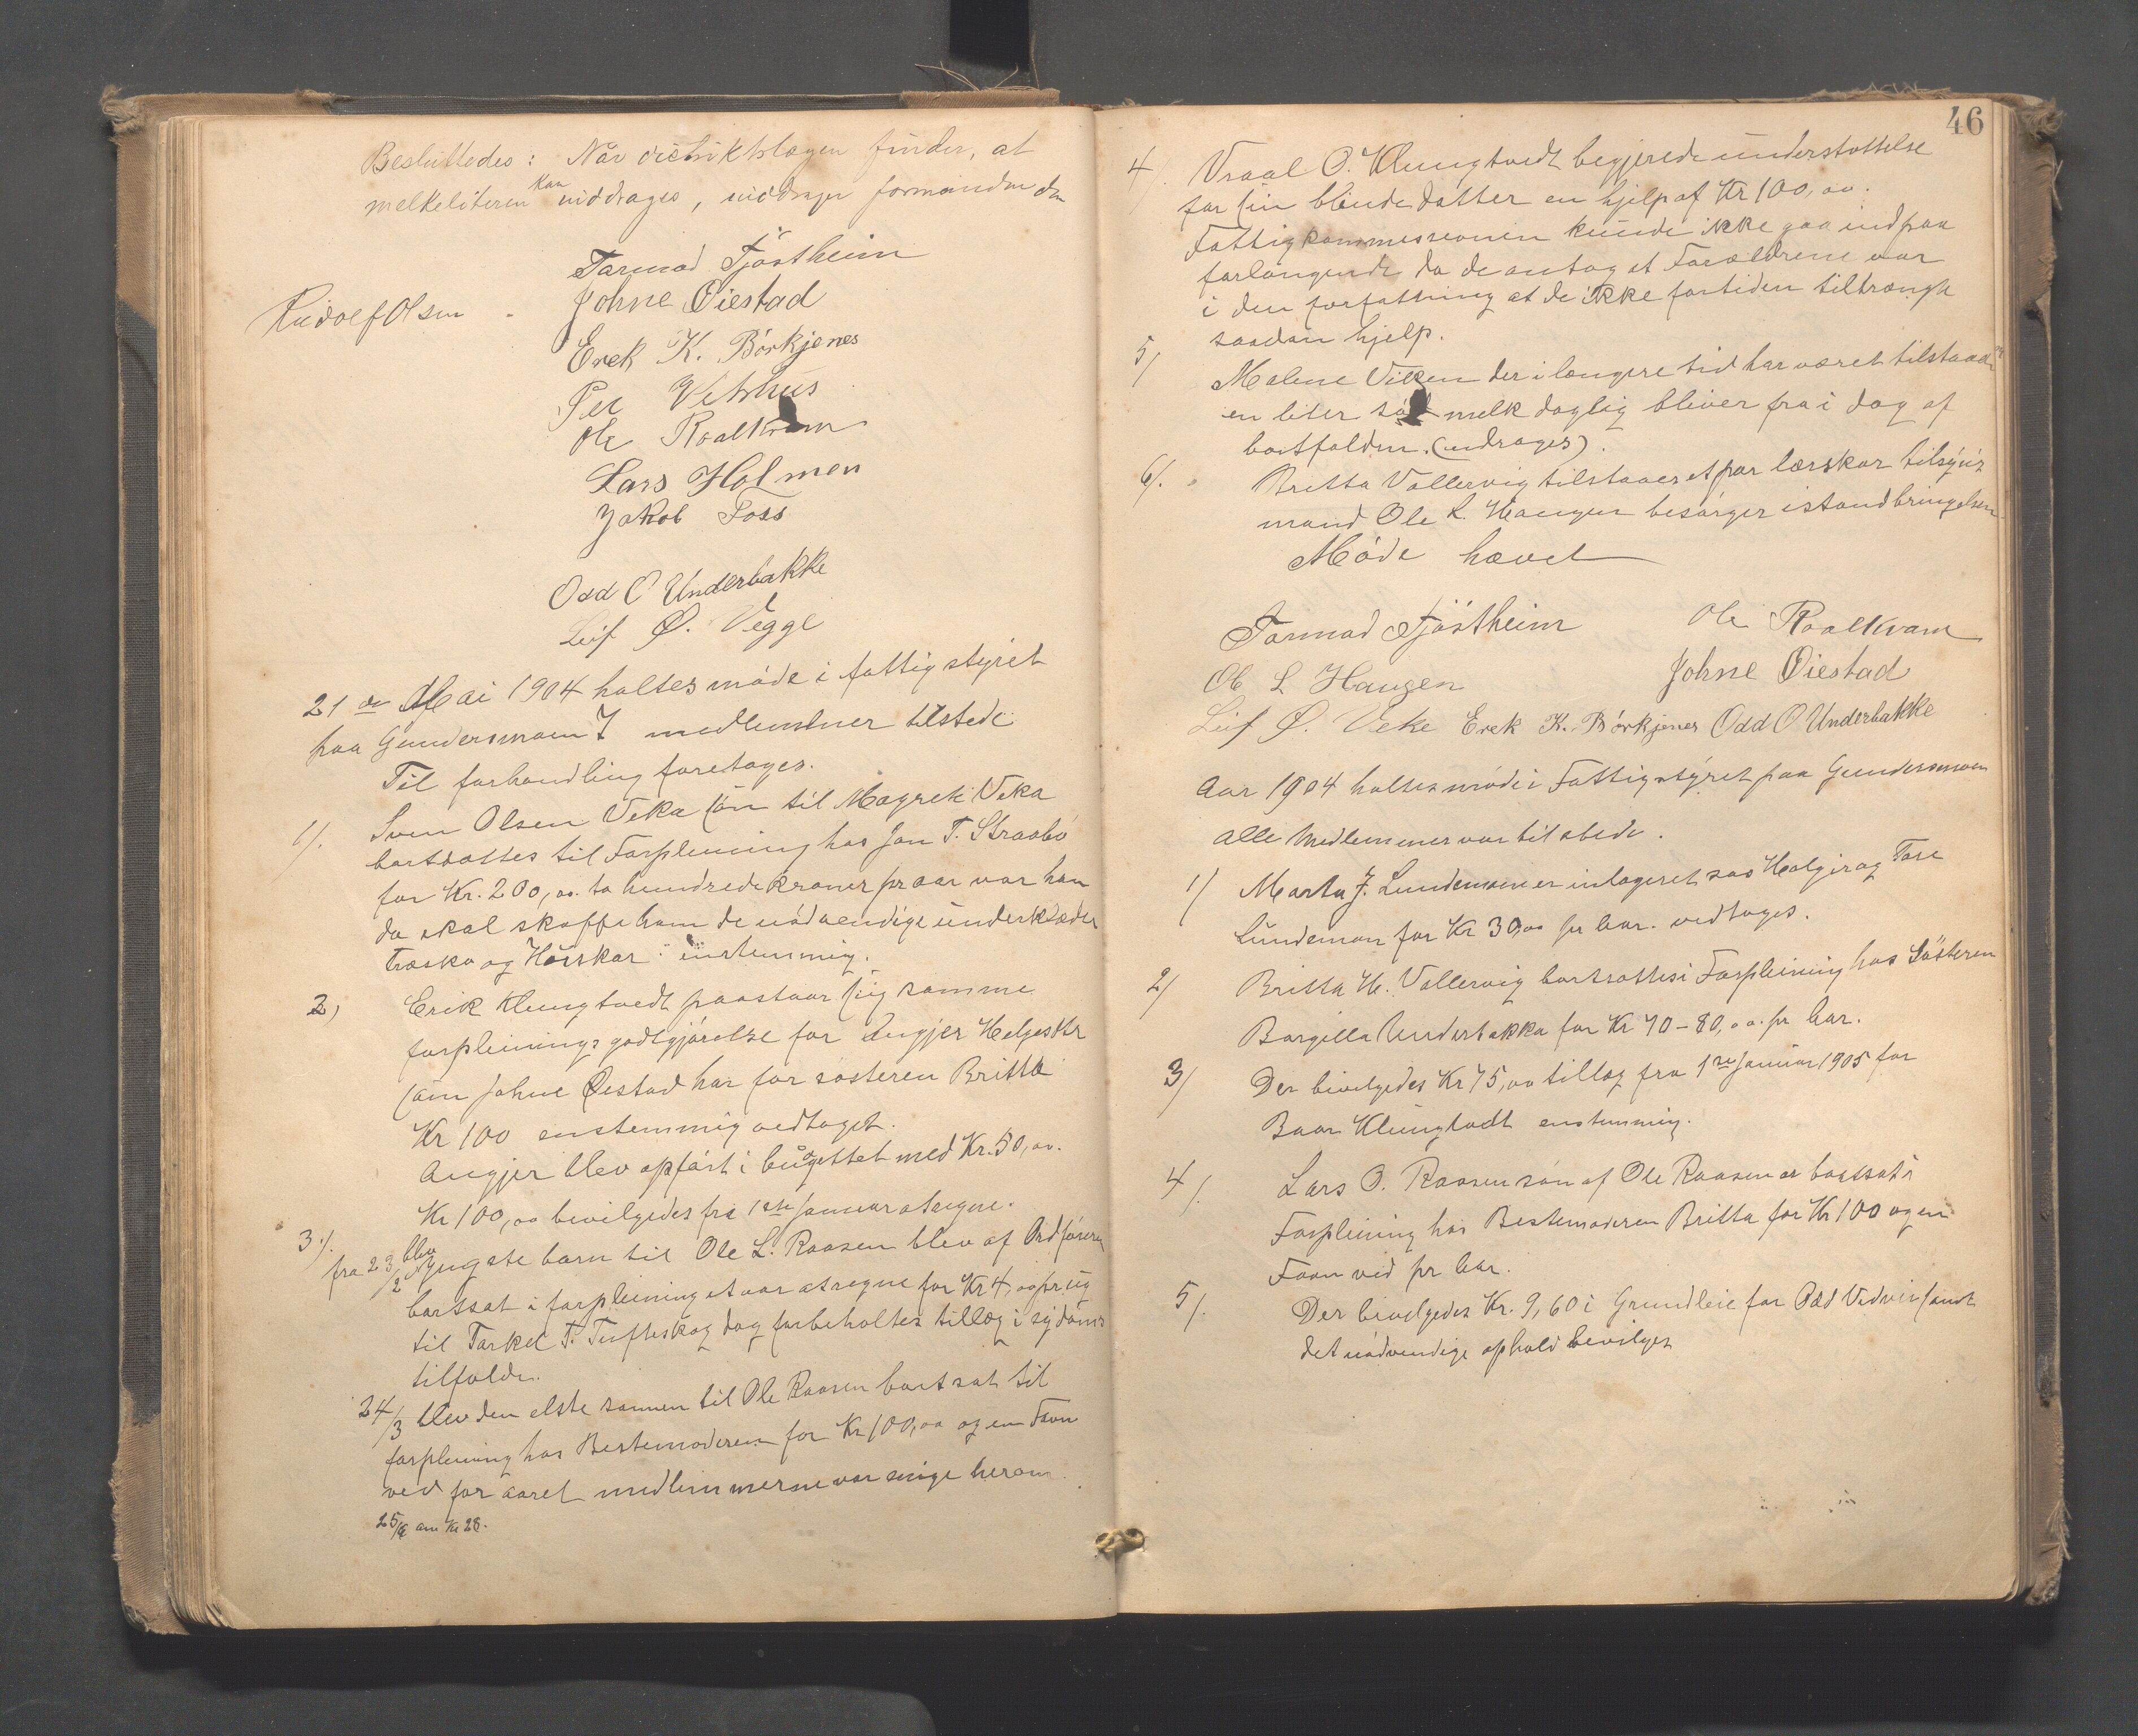 Besluttedes: Når distriktslægen finder, at
melkeliteren kan inddrages, inddrager formanden den
Tormod Tjöstheim
Rudolf Olsen
Johne Øiestad
Erek K. Börkjenes
Per Vetrhus
Ole Roalkvam
Lars Holmen
Jakob Foss
Odd O Underbakke
Leif Ø. Vegge
21 de Mai 1904 holtes möde i fattigstyret
paa Gundersmoen 7 medlemmer tilstede
Til forhandling foretoges.
1/. Sven Olsen Veka sön til Magrete Veka
bortsattes til Forpleining hos Jon T. Straabö
for Kr. 200,00 to hundrede kroner pr aar var han
da skal skaffe ham de nödvendige underklæder
træsko og Hösskor. enstemmig.
2) Erik Klungtvedt paastaar sig samme
forpleinings godtgjörelse for Angjer Helgesdtr
som Johne Øiestad har for sösteren Britta
Kr 100 enstemmig vedtaget.
Angjer blev opfört i budgettet med Kr. 50,00.
Kr 100,00 bevilgedes fra 1ste Januar at regne.
3/. fra 23/2 blev yngste barn til Ole L. Roasen blev af Ordföreren
bortsat i forpleining et aar at regne for Kr 4,00 pr ug
til Torkel T. Tufteskog dog forbeholtes tillæg i sydoms
tilfælde.
24/3 blev den elste sönnen til Ole Roasen bortsat til
forpleining hos Bestemoderen for Kr 100,00 og en Favn
ved for aaret medlemmerne var enige herom.
25/6 om Kr 28.
46
4/. Vraal O. Klungtvedt begjerede understøttelse
for sin blinde datter en hjelp af Kr 100,00.
Fattigkommesseonen kunde ikke gaa ind paa
forlangende da de antog at Forældrene var
i den forfattning at de ikke fortiden tiltrængte
saadan hjelp.
5/ Malene Viken der i længere tid har været tilstaaed
en liter söd melk daglig bliver fra i dag af
bortfalden. (indrages).
6/. Britta Vallervig tilstaaes et par lærskor tilsyns
mand Ole L. Haugen besörger istandbringelsen
Möde hævet
Tormod Tjöstheim Ole Roalkvam
Ole L Haugen Johne Øiestad
Leif Ø. Veke Erek K. Börkjenes Odd O Underbakke
Aar 1904 holtes möde i Fattigstyret paa Gundersmoen
alle Medlemmer var tilstede.
1/ Marta J. Lundemoen er intageret hos Holger og Tore
Lundemoen for Kr 30,00 pr Aar. vedtoges.
2/ Britta H. Vallervig bortsattes i Forpleining hos Sösteren
Borgilla Underbakka for Kr 70-80,00 pr Aar.
3/ Der bivelgedes Kr 75,00 tillæg fra 1ste Januar 1905 for
Baar Klungtvedt enstemmig.
4/. Lars O. Roasen sön af Ole Roasen er bortsat i
Forpleining hos Bestemoderen Britta for Kr 100 og en
Favn ved pr Aar.
5/. Der bivelgedes Kr. 9,60 i Grundleie for Odd Vedvik samt
det nödvendige ophold bevilges